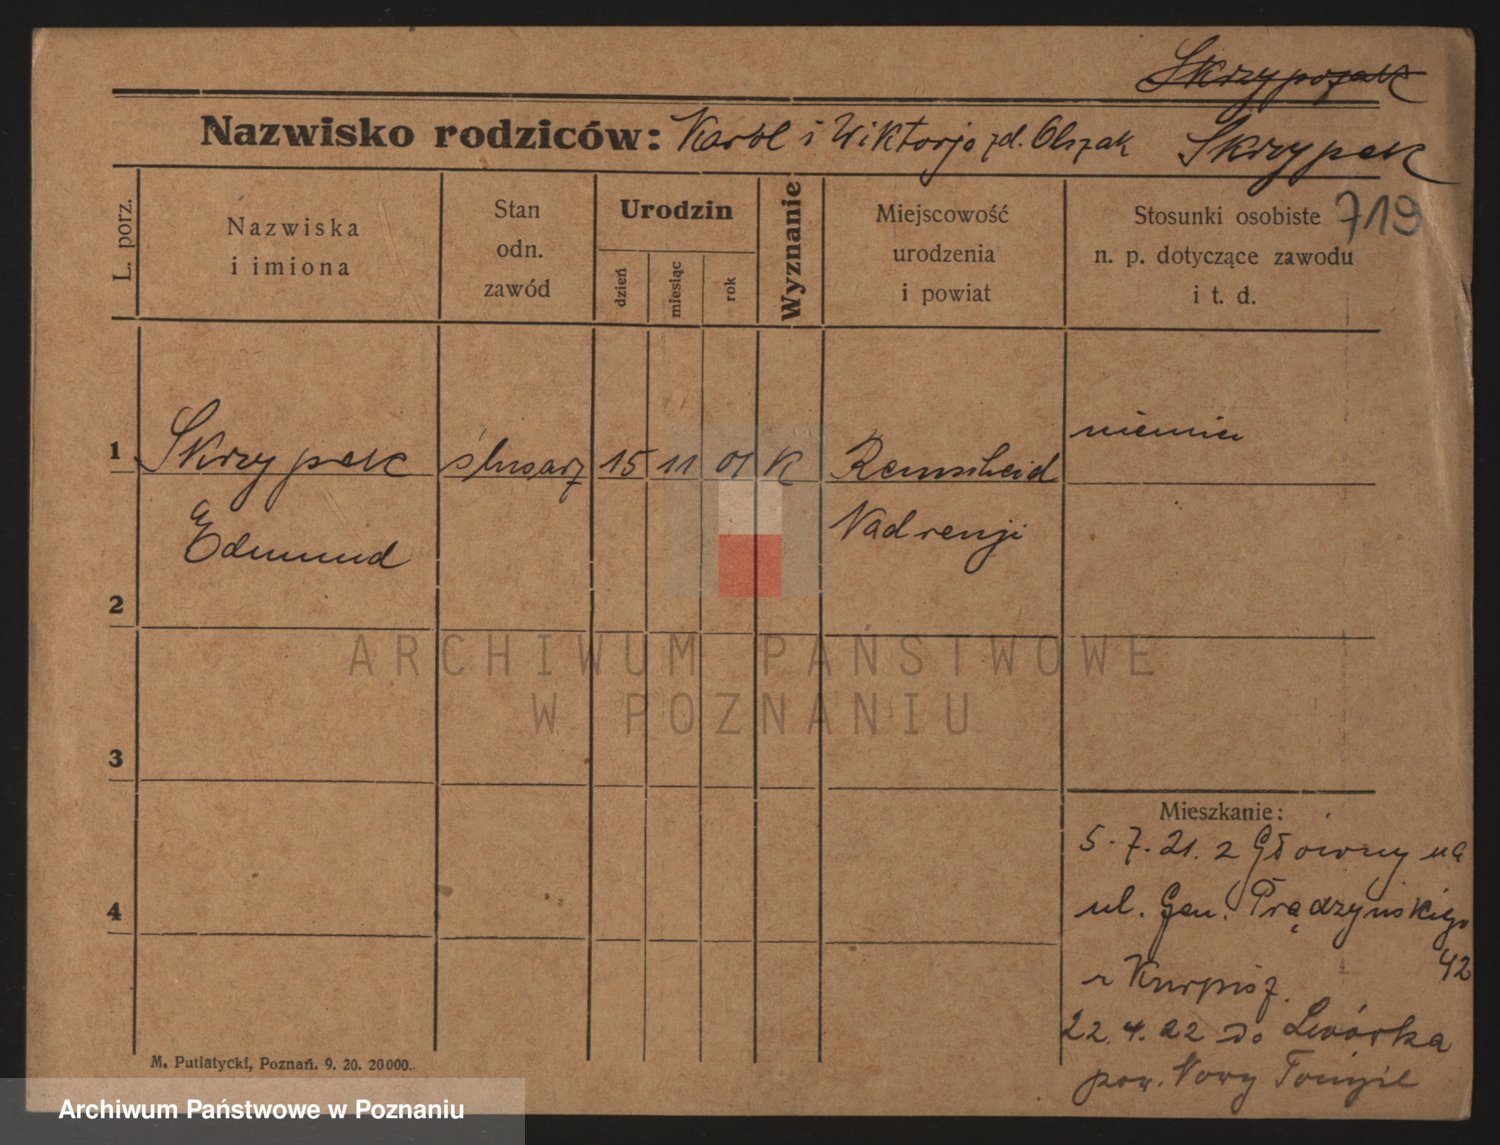 Skrzypczak
Nazwisko rodziców: Karol i Wiktorja zd. Olszak Skrzypek
719
L. porz.
Nazwiska
i imiona
Stan
odn.
zawód
Urodzin
dzień
miesiąc
rok
Wyznanie
Miejscowość
urodzenia
i powiat
Stosunki osobiste
n. p. dotyczące zawodu
i t. d.
1 Skrzypek ślusarz 15 11 01 K Remscheid
Edmund Nadrenji
2
3
4
Mieszkanie:
5.7.21. z Główny na
ul. Gen. Prądzyńskiego
42
Kurpisz.
22.4.22 do Lwówka
pow. Nowy Tomyśl
M. Putiatycki, Poznań. 9. 20. 20000.
ARCHIWUM PAŃSTWOWE
W POZNANIU
Archiwum Państwowe w Poznaniu